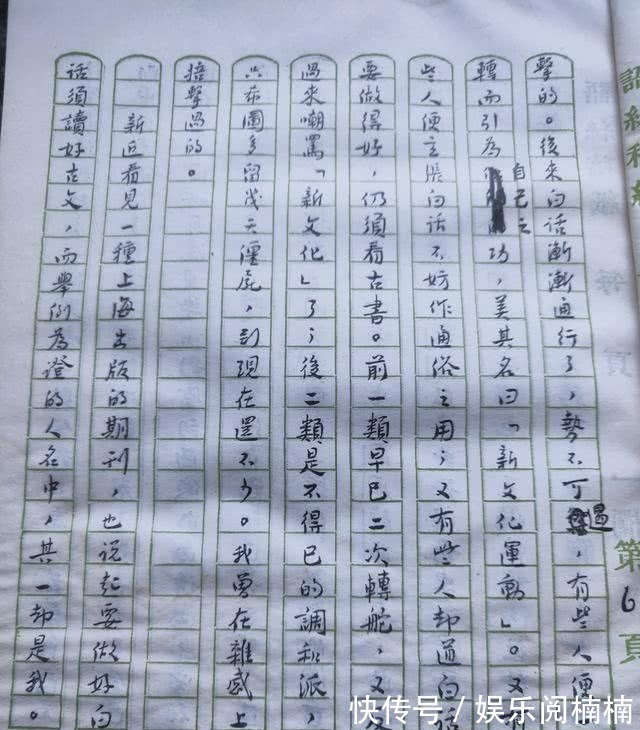 第6頁
擊的。後來白话漸漸通行了，勢不可遏，有些人便
轉而引為自己之功，美其名曰「新文化運動」。又有
些人便主張白话不妨作通俗之用；又有些人却道白话
要做得好，仍須看古書。前一類早已二次轉舵，又反
過來嘲罵「新文化」了；後二類是不得已的調和派，
只希圖多留幾天僵屍，到現在還不少。我曾在雜感上
掊擊過的。
新近看見一種上海出版的期刊，也说起要做好白
话須讀好古文，而舉例為證的人名中，其一却是我。
快传号/娱乐阅楠楠